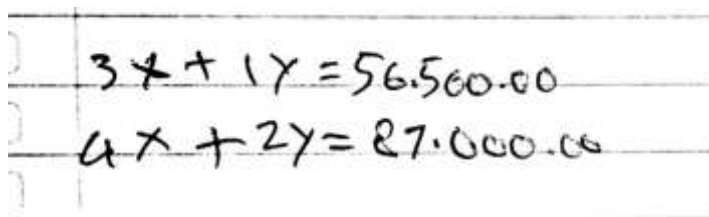 3x + 1y = 56.500.00
4x + 2y = 87.000.00